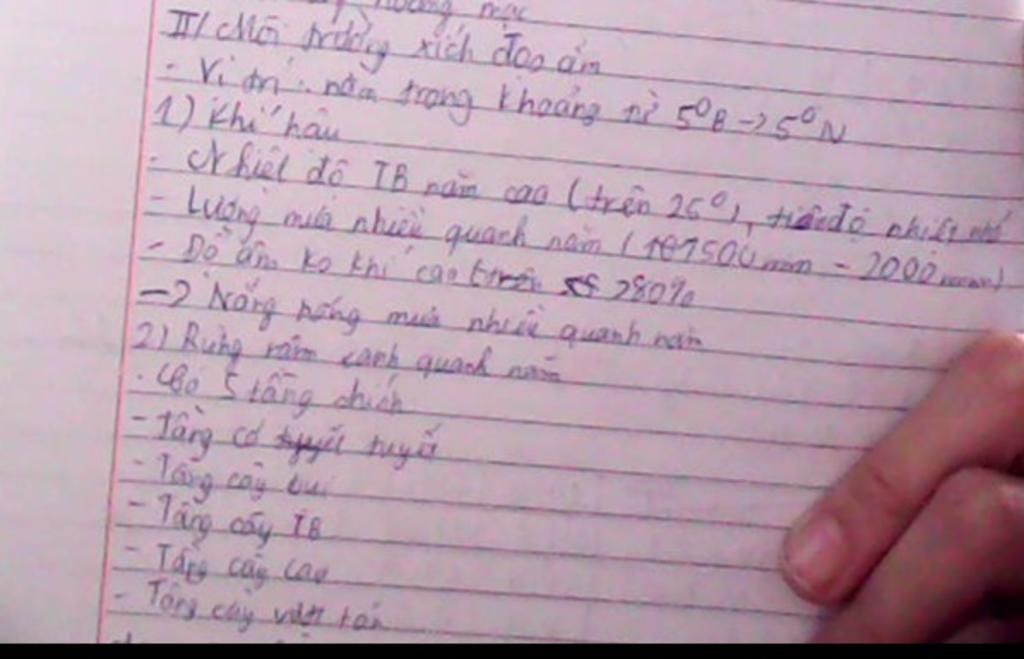 hoang mạc
II/ Môi trường xích đạo ẩm
- Vị trí: nằm trong khoảng từ 5⁰B -> 5⁰N
1) Khí hậu
- Nhiệt độ TB năm cao (trên 25⁰), độ nhiệt nhỏ
- Lượng mưa nhiều quanh năm (1500mm - 2000mm)
- Độ ẩm ko khí cao 280%
-> Nắng nóng mưa nhiều quanh năm
2) Rừng rậm xanh quanh năm
- Có 5 tầng chính
- Tầng cỏ tuyết
- Tầng cây bụi
- Tầng cây TB
- Tầng cây cao
- Tầng cây vượt tán